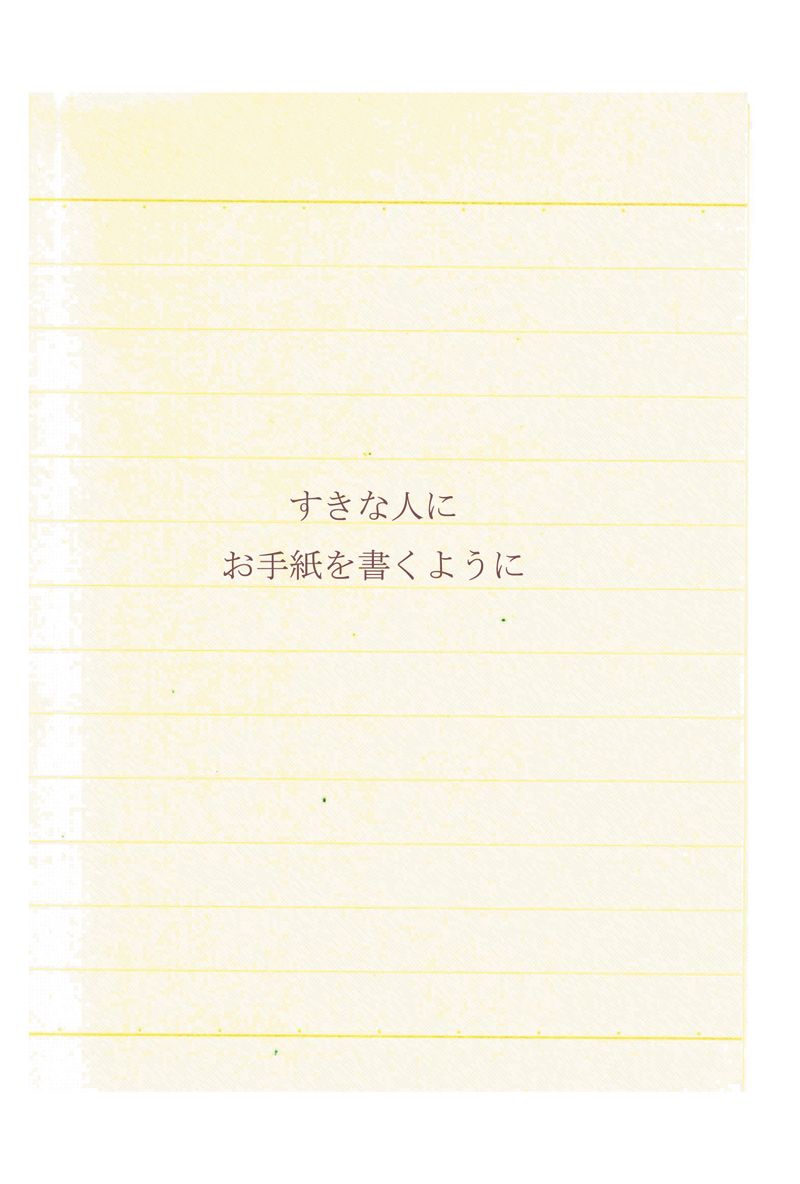 すきな人に
お手紙を書くように